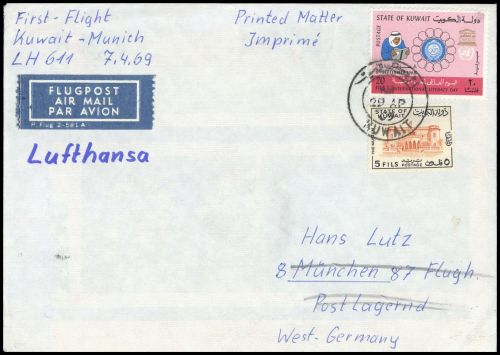 First-Flight
Kuwait-Munich
LH 611 7.4.69
Printed Matter
Imprimé
FLUGPOST
AIR MAIL
PAR AVION
Lufthansa
POSTAGE
STATE OF KUWAIT دولة الكويت
INTERNATIONAL LITERACY DAY
٢٠
KUWAIT
STATE OF KUWAIT
دولة الكويت
5 FILS POSTAGE ٥
Hans Lutz
8 München 87 Flugh.
Postlagernd
West-Germany